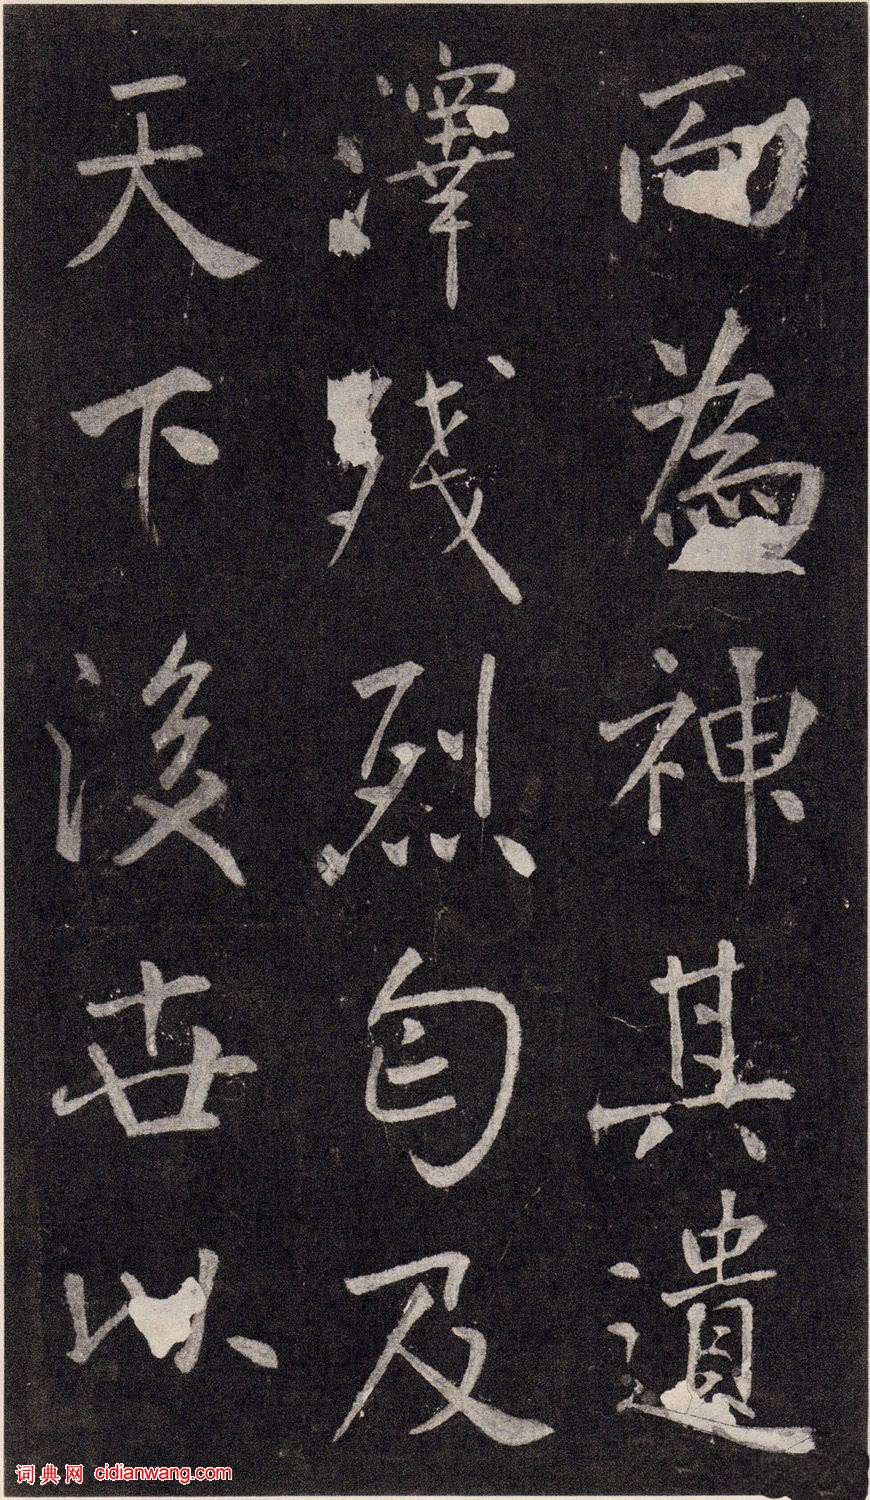 而為神其遺
澤残烈匄及
天下後世以
词典网 cidianwang.com